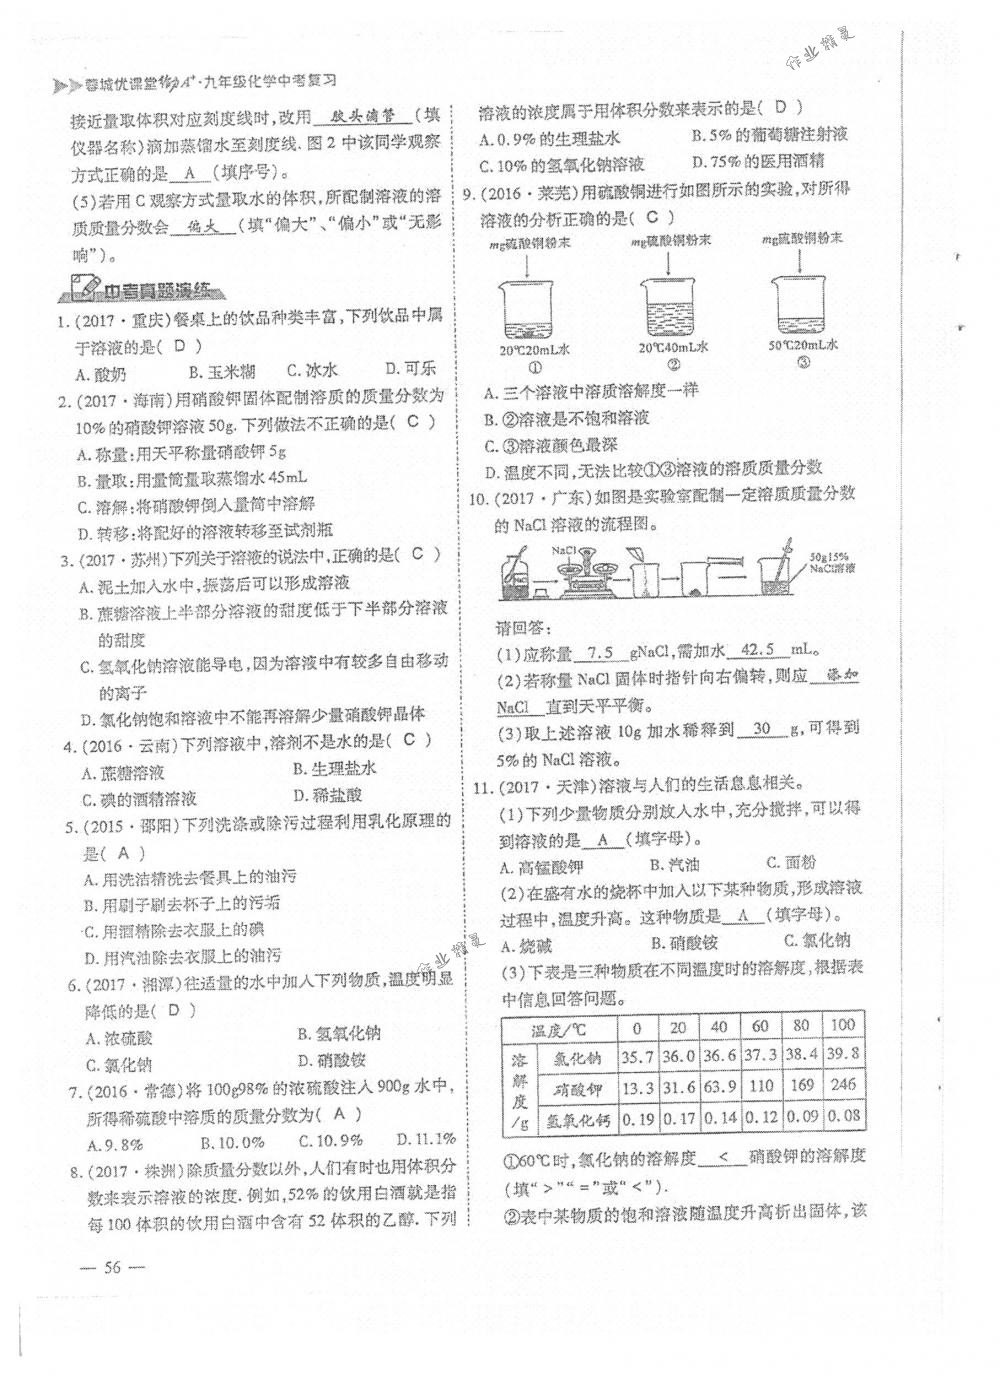 作业精灵
蓉城优课堂给力A+·九年级化学中考复习
接近量取体积对应刻度线时,改用 胶头滴管 (填
仪器名称)滴加蒸馏水至刻度线. 图2中该同学观察
方式正确的是 A (填序号)。
(5)若用C观察方式量取水的体积,所配制溶液的溶
质质量分数会 偏大 (填“偏大”、“偏小”或“无影
响”)。
中考真题演练
1. (2017·重庆)餐桌上的饮品种类丰富,下列饮品中属
于溶液的是( D )
A. 酸奶 B. 玉米糊 C. 冰水 D. 可乐
2. (2017·海南)用硝酸钾固体配制溶质的质量分数为
10%的硝酸钾溶液50g. 下列做法不正确的是( C )
A. 称量:用天平称量硝酸钾5g
B. 量取:用量筒量取蒸馏水45mL
C. 溶解:将硝酸钾倒入量筒中溶解
D. 转移:将配好的溶液转移至试剂瓶
3. (2017·苏州)下列关于溶液的说法中,正确的是( C )
A. 泥土加入水中,振荡后可以形成溶液
B. 蔗糖溶液上半部分溶液的甜度低于下半部分溶液
的甜度
C. 氢氧化钠溶液能导电,因为溶液中有较多自由移动
的离子
D. 氯化钠饱和溶液中不能再溶解少量硝酸钾晶体
4. (2016·云南)下列溶液中,溶剂不是水的是( C )
A. 蔗糖溶液 B. 生理盐水
C. 碘的酒精溶液 D. 稀盐酸
5. (2015·邵阳)下列洗涤或除污过程利用乳化原理的
是( A )
A. 用洗洁精洗去餐具上的油污
B. 用刷子刷去杯子上的污垢
C. 用酒精除去衣服上的碘
D. 用汽油除去衣服上的油污
作业精灵
6. (2017·湘潭)往适量的水中加入下列物质,温度明显
降低的是( D )
A. 浓硫酸 B. 氢氧化钠
C. 氯化钠 D. 硝酸铵
7. (2016·常德)将100g98%的浓硫酸注入900g水中,
所得稀硫酸中溶质的质量分数为( A )
A. 9.8% B. 10.0% C. 10.9% D. 11.1%
8. (2017·株洲)除质量分数以外,人们有时也用体积分
数来表示溶液的浓度. 例如,52%的饮用白酒就是指
每100体积的饮用白酒中含有52体积的乙醇. 下列
— 56 —
溶液的浓度属于用体积分数来表示的是( D )
A. 0.9%的生理盐水 B. 5%的葡萄糖注射液
C. 10%的氢氧化钠溶液 D. 75%的医用酒精
9. (2016·莱芜)用硫酸铜进行如图所示的实验,对所得
溶液的分析正确的是( C )
mg硫酸铜粉末 mg硫酸铜粉末 mg硫酸铜粉末
20℃20mL水 20℃40mL水 50℃20mL水
① ② ③
A. 三个溶液中溶质溶解度一样
B. ②溶液是不饱和溶液
C. ③溶液颜色最深
D. 温度不同,无法比较①③溶液的溶质质量分数
10. (2017·广东)如图是实验室配制一定溶质质量分数
的NaCl溶液的流程图。
NaCl
50g15%
NaCl溶液
请回答:
(1)应称量 7.5 gNaCl,需加水 42.5 mL。
(2)若称量NaCl固体时指针向右偏转,则应 添加
NaCl 直到天平平衡。
(3)取上述溶液10g加水稀释到 30 g,可得到
5%的NaCl溶液。
11. (2017·天津)溶液与人们的生活息息相关。
(1)下列少量物质分别放入水中,充分搅拌,可以得
到溶液的是 A (填字母)。
A. 高锰酸钾 B. 汽油 C. 面粉
(2)在盛有水的烧杯中加入以下某种物质,形成溶液
过程中,温度升高。这种物质是 A (填字母)。
A. 烧碱 B. 硝酸铵 C. 氯化钠
(3)下表是三种物质在不同温度时的溶解度,根据表
中信息回答问题。
温度/℃ 0 20 40 60 80 100
溶解度/g 氯化钠 35.7 36.0 36.6 37.3 38.4 39.8
硝酸钾 13.3 31.6 63.9 110 169 246
氢氧化钙 0.19 0.17 0.14 0.12 0.09 0.08
①60℃时,氯化钠的溶解度 < 硝酸钾的溶解度
(填“>”“=”或“<”).
②表中某物质的饱和溶液随温度升高析出固体,该